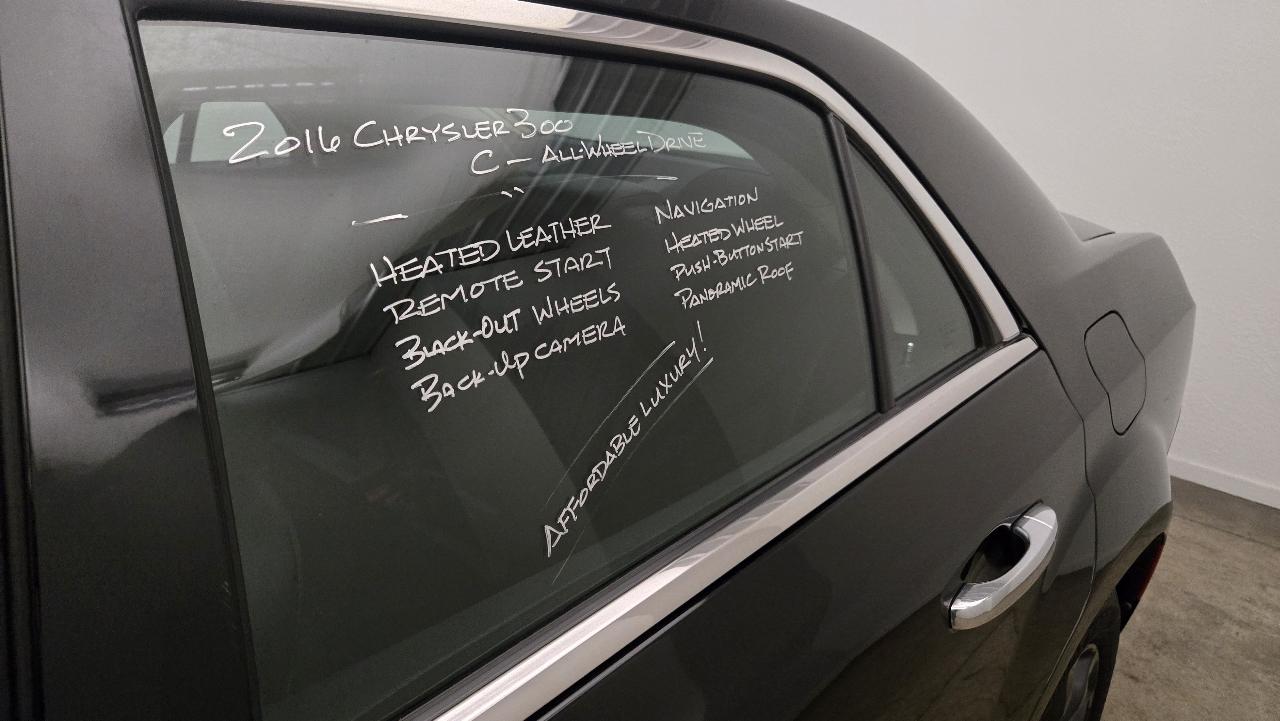 2016 CHRYSLER 300
C - ALL-WHEEL DRIVE
— " —
HEATED LEATHER
REMOTE START
BLACK-OUT WHEELS
BACK-UP CAMERA
NAVIGATION
HEATED WHEEL
PUSH-BUTTON START
PANORAMIC ROOF
AFFORDABLE LUXURY!